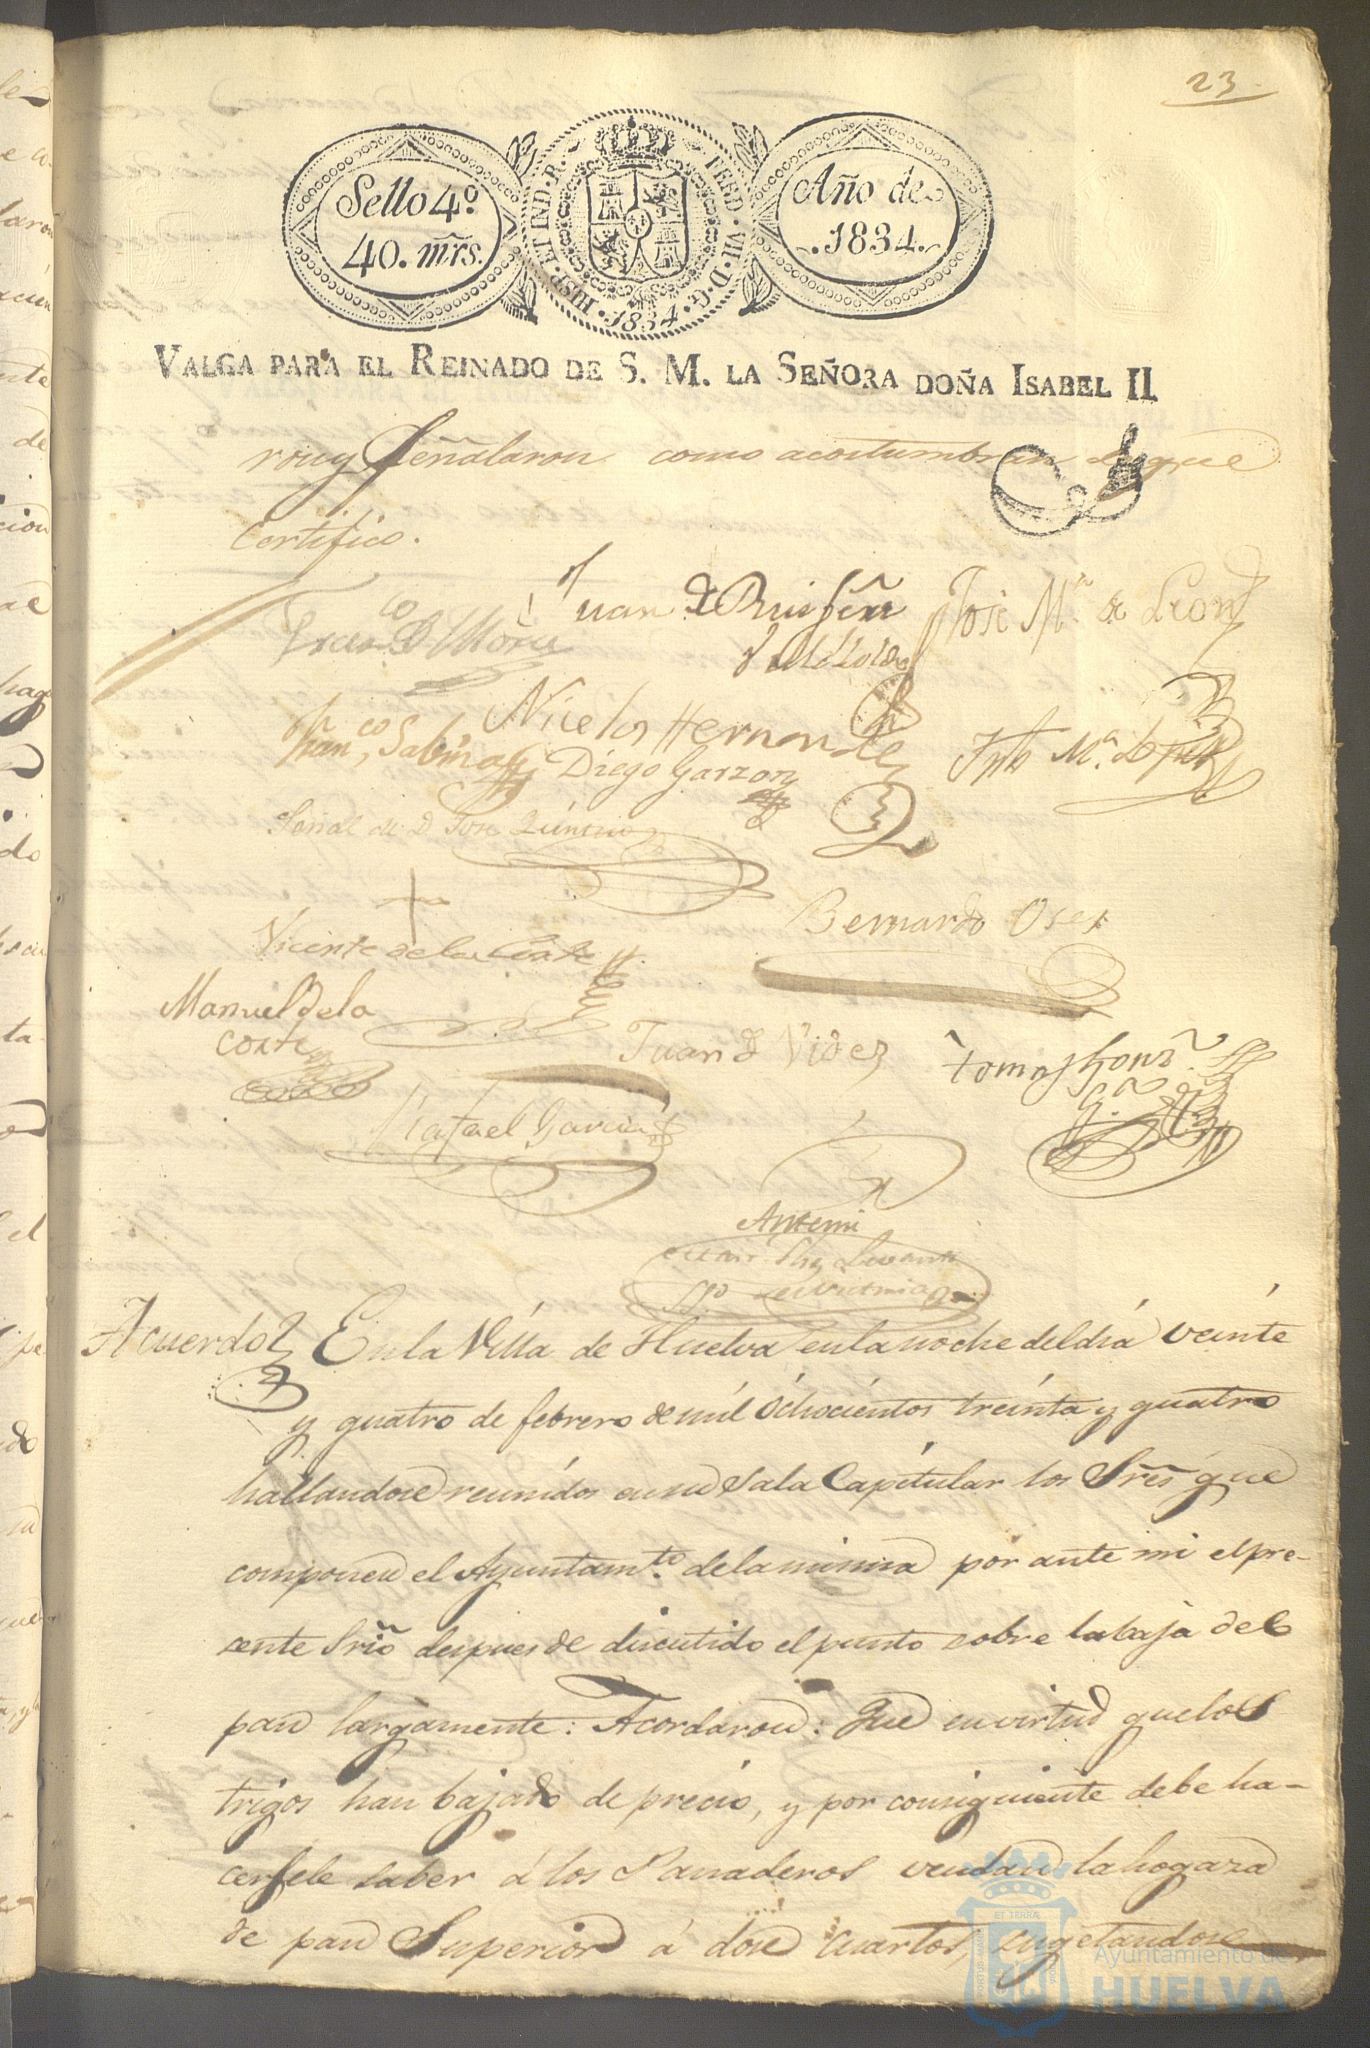 23
Sello 4º
40. mrs.
HISP. ET IND. R. FERD. VII. D. G. 1834
Año de
1834.
VALGA PARA EL REINADO DE S. M. LA SEÑORA DOÑA ISABEL II
ron y señalaron como acostumbran de que
Certifico.
Juan José Mª de Leon
Nicolas Hernandez
Franco Sabino Diego Garzon
Señal de D Jose
Bernardo
Vicente de la Corte
Manuel de la
Corte
Juan Videz
Tomas Gonz
Rafael Garcia
Antemi
Acuerdo En la Villa de Huelva en la noche del dia veinte
y quatro de febrero de mil óchocientos treinta y quatro
hallandose reunidos en su Sala Capitular los Sres que
componen el Ayuntamto. de la misma por ante mi el pre-
sente Srio despues de discutido el punto sobre la baja del
pan largamente: Acordaron: Que en virtud que los
trigos han bajado de precio, y por consiguiente debe ha-
cersele saber á los Panaderos vendan la hogaza
de pan Superior á dose cuartos, sugetandose
Ayuntamiento de
HUELVA